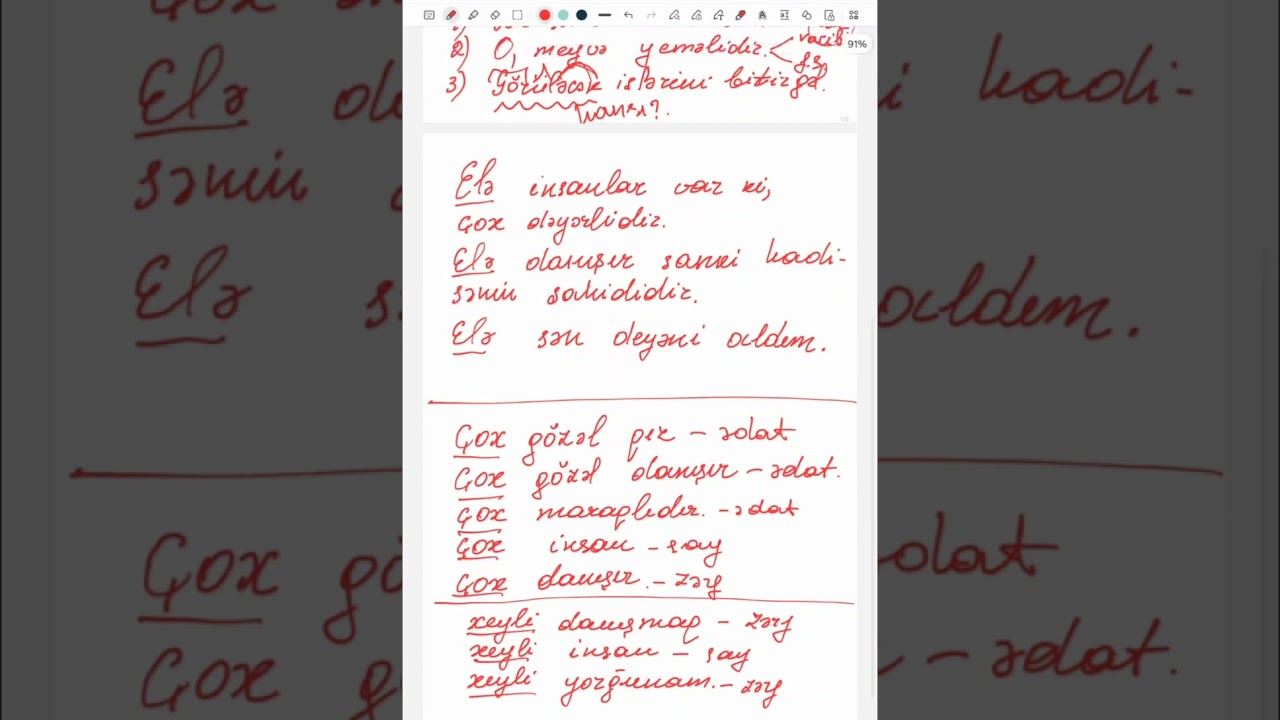 2) O, meyvə yeməlidir. vacib
f.ş.
91%
3) Görüləcək işlərini bitirdi.
hansı?
1/2
Elə insanlar var ki,
çox dəyərlidir.
Elə danışır sanki hadi-
sənin şahididir.
Elə sən deyəni aldım.
Çox gözəl qız - ədat
Çox gözəl danışır - ədat.
Çox maraqlıdır. - ədat
Çox insan - say
Çox danışır. - zərf
xeyli danışmaq - zərf
xeyli insan - say
xeyli yorğunam. - zərf